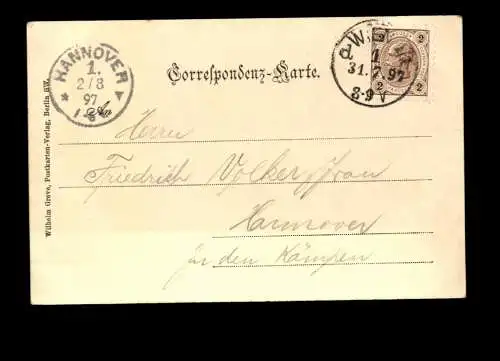 HANNOVER
1.
2/8
97
Correspondenz-Karte.
31. 7. 97
8-9 V
2 2
2 2
An
Herrn
Friedrich Volker
Hannover
in den Kämpen
Wilhelm Greve, Postkarten-Verlag, Berlin SW.